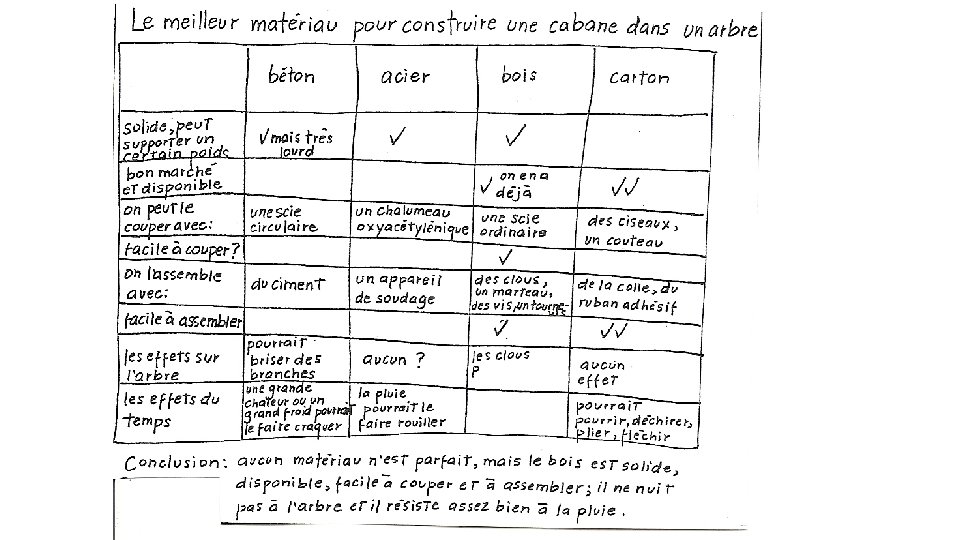 Le meilleur matériau pour construire une cabane dans un arbre
béton acier bois carton
solide, peut
supporter un
certain poids
✓ mais très
lourd
✓
✓
bon marché
et disponible
✓ on en a
déjà
✓✓
on peut le
couper avec:
une scie
circulaire
un chalumeau
oxyacétylénique
une scie
ordinaire
des ciseaux,
un couteau
facile à couper?
✓
on l'assemble
avec:
du ciment
un appareil
de soudage
des clous,
un marteau,
des vis, un tourne-
de la colle, du
ruban adhésif
facile à assembler
✓
✓✓
les effets sur
l'arbre
pourrait
briser des
branches
aucun ?
les clous
?
aucun
effet
les effets du
temps
une grande
chaleur ou un
grand froid pourrait
le faire craquer
la pluie
pourrait le
faire rouiller
pourrait
pourrir, déchirer,
plier, fléchir
Conclusion: aucun matériau n'est parfait, mais le bois est solide,
disponible, facile à couper et à assembler; il ne nuit
pas à l'arbre et il résiste assez bien à la pluie.